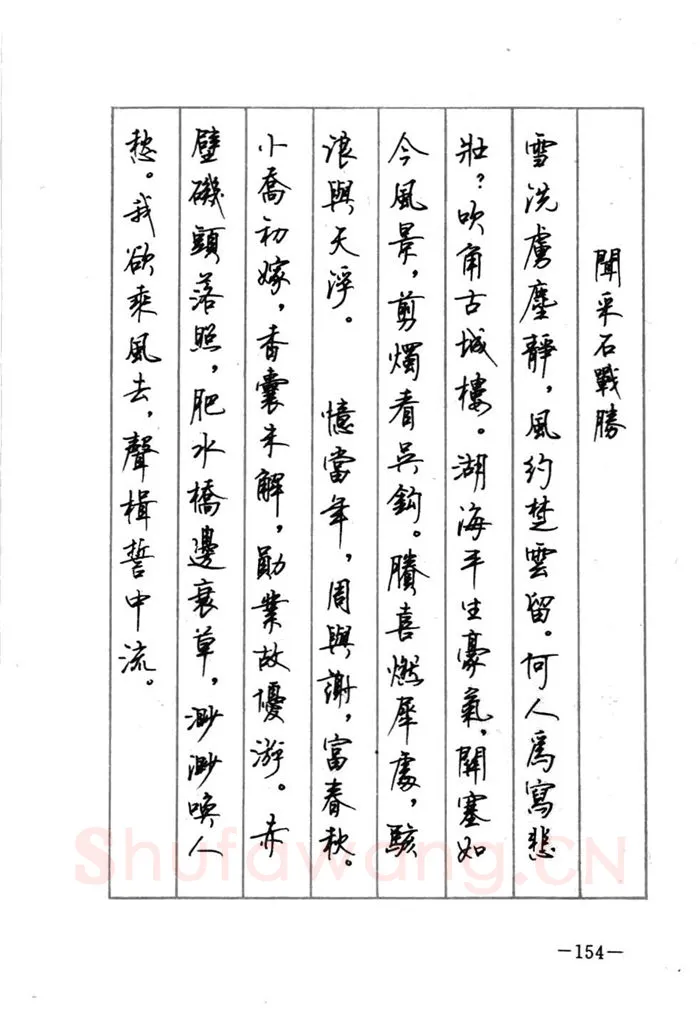 聞采石戰勝
雪洗虜塵靜，風約楚雲留。何人爲寫悲
壯？吹角古城樓。湖海平生豪氣，關塞如
今風景，剪燭看吳鈎。賸喜燃犀處，駭
浪與天浮。 憶當年，周與謝，富春秋。
小喬初嫁，香囊未解，勛業故優游。赤
壁磯頭落照，肥水橋邊衰草，渺渺喚人
愁。我欲乘風去，聲楫誓中流。
Shufawang.CN
—154—